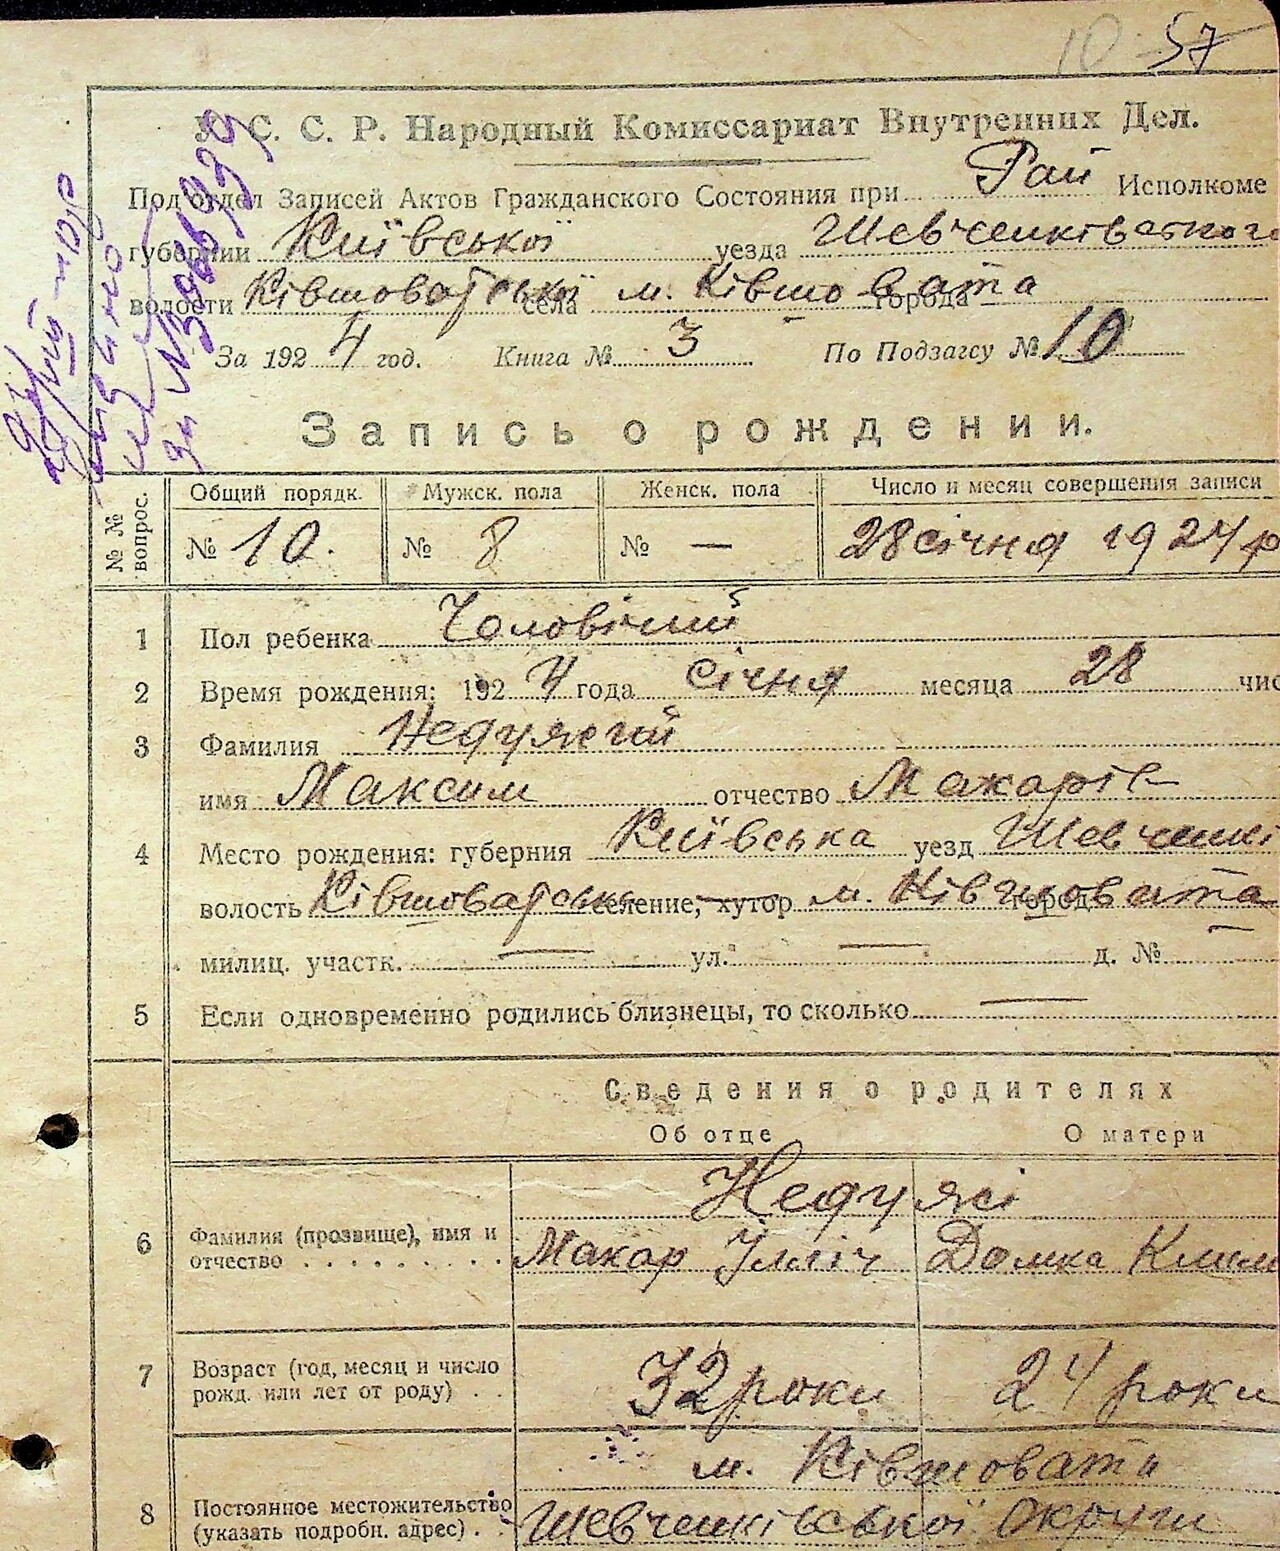 10 57
У. С. С. Р. Народный Комиссариат Внутренних Дел.
Под'отдел Записей Актов Гражданского Состояния при Рай Исполкоме
губернии Київської уезда
волости Ківшоватської села м. Ківшовата города
За 1924 год. Книга № 3 По Подзагсу № 10
Запись о рождении.
№ № вопрос.
Общий порядк. Мужск. пола Женск. пола Число и месяц совершения записи
№ 10. № 8 № — 28 січня 1924 р
1 Пол ребенка Чоловічий
2 Время рождения: 1924 года січня месяца 28 чис
3 Фамилия Недужий
имя Максим отчество Макарів
4 Место рождения: губерния Київська уезд Шевченкі
волость Ківшоватська селение, хутор м. Ківшовата город
милиц. участк. — ул. — д. № —
5 Если одновременно родились близнецы, то сколько —
Сведения о родителях
Об отце О матери
Недужі
6 Фамилия (прозвище), имя и отчество . . . . . . . . . . Макар Ілліч Домка Клим
7 Возраст (год, месяц и число рожд. или лет от роду) . . 32 роки 24 роки
м. Ківшовата
8 Постоянное местожительство (указать подробн. адрес) . . Шевченківської Округи